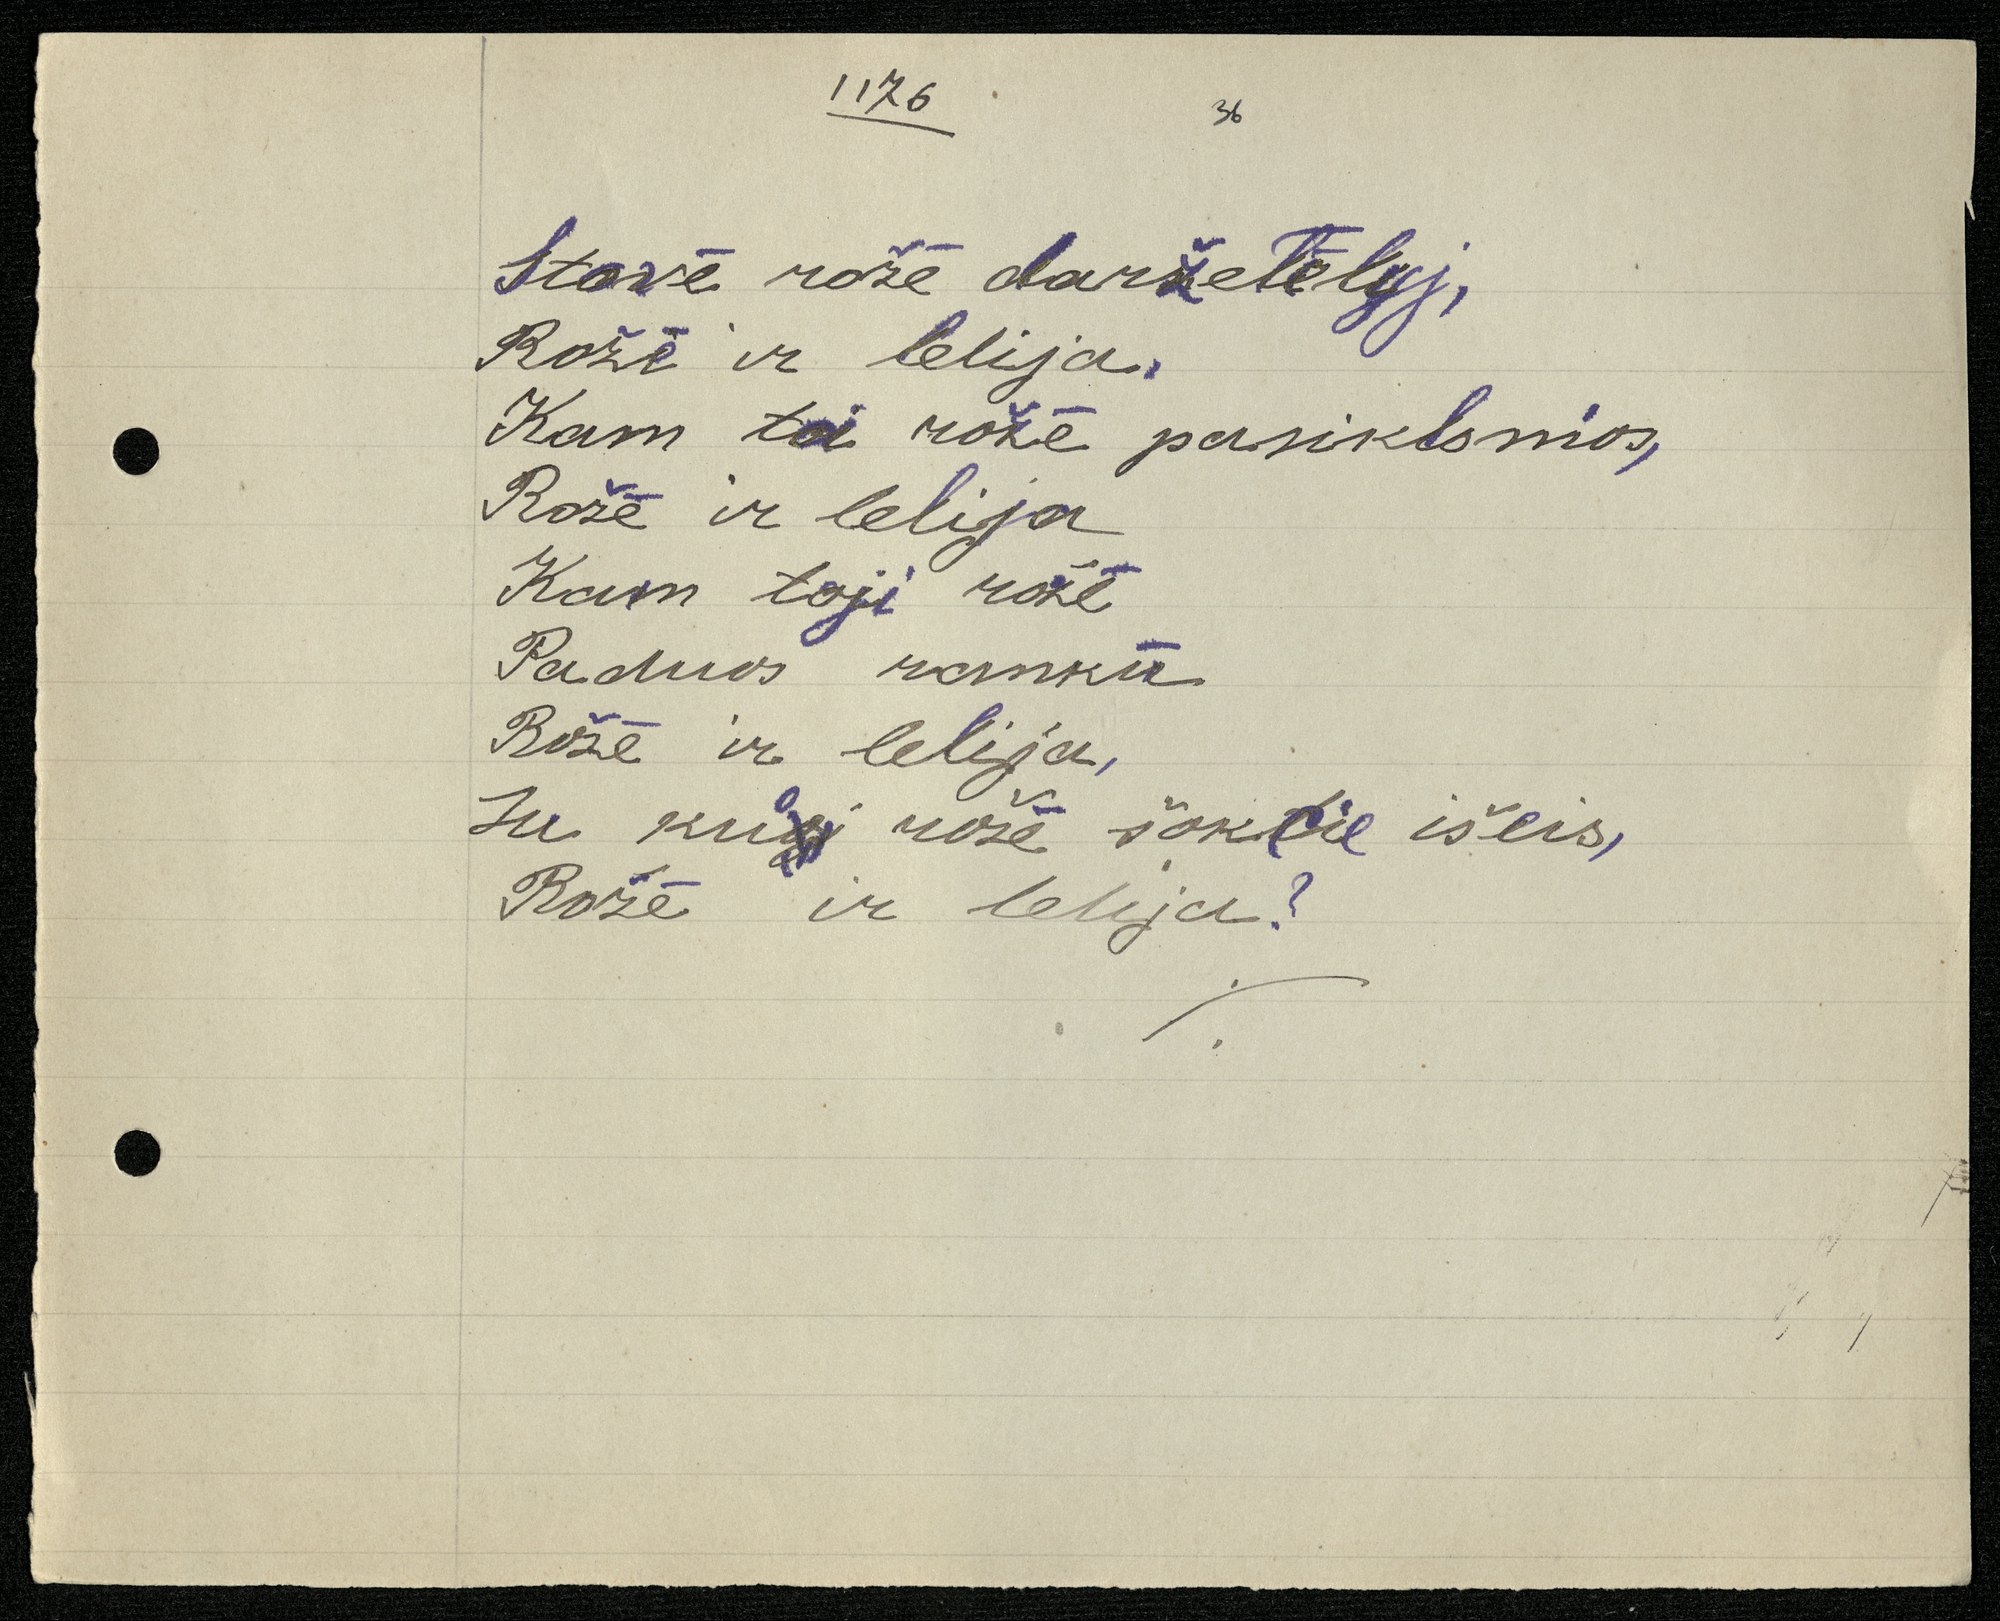 1176 36
Stovē rožē daržetēlyj,
Rožē ir lelija.
Kam ta rožē pasiklonios,
Rožē ir lelija
Kam toji rožē
Paduos rankū
Rožē ir lelija,
Su kuoj rožē šoktie išeis,
Rožē ir lelija?